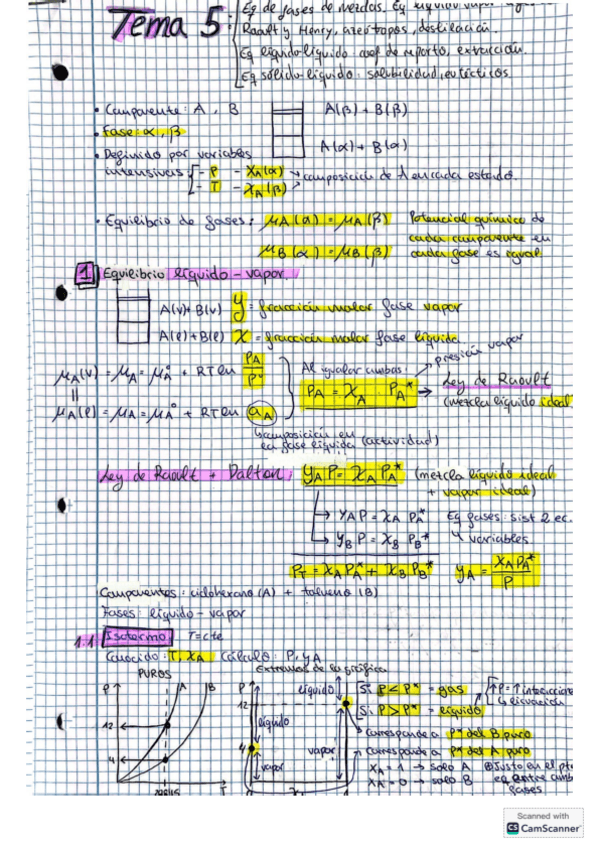 Tema 5:
Eq de fases de mezclas. Eq líquido vapor
Raoult y Henry, azeótropos, destilación.
Eq líquido-líquido: coef de reparto, extracción.
Eq sólido-líquido: solubilidad, eutécticos
• Componente: A, B
A(β) + B(β)
• Fase: α, β
A(α) + B(α)
• Definido por variables
intensivas - P - XA(α) → composición de A en cada estado.
- T - XA(β)
• Equilibrio de fases: μA(α) = μA(β) Potencial químico de
cada componente en
μB(α) = μB(β) cada fase es igual.
1 Equilibrio líquido - vapor.
A(v)+B(v) y = fracción molar fase vapor
A(l)+B(l) x = fracción molar fase líquida
presión vapor
μA(v) = μA = μA° + RT ln PA/P° Al igualar ambas:
PA = XA · PA* → Ley de Raoult
(mezcla líquido ideal)
=
μA(l) = μA = μA° + RT ln aA
composición en
la fase líquida (actividad)
Ley de Raoult + Dalton: yAP = XA PA* (mezcla líquido ideal
+ vapor ideal)
→ yAP = XA PA* Eq fases: sist 2 ec.
→ yBP = XB PB* 4 variables
PT = XA PA* + XB PB* yA = XA PA*/P
Componentes: ciclohexano (A) + tolueno (B)
Fases: líquido - vapor
1.1 Isotermo T=cte
Conocido: T, XA Cálculo: P, yA
PUROS Extremos de la gráfica
P A B P líquido Si P < P* = gas
12 12 Si P > P* = líquido
líquido Corresponde a P* del B puro
4 4 vapor Corresponde a P* del A puro
vapor XA = 1 → solo A
T XA = 0 → solo B eq entre
fases
Scanned with
CS CamScanner